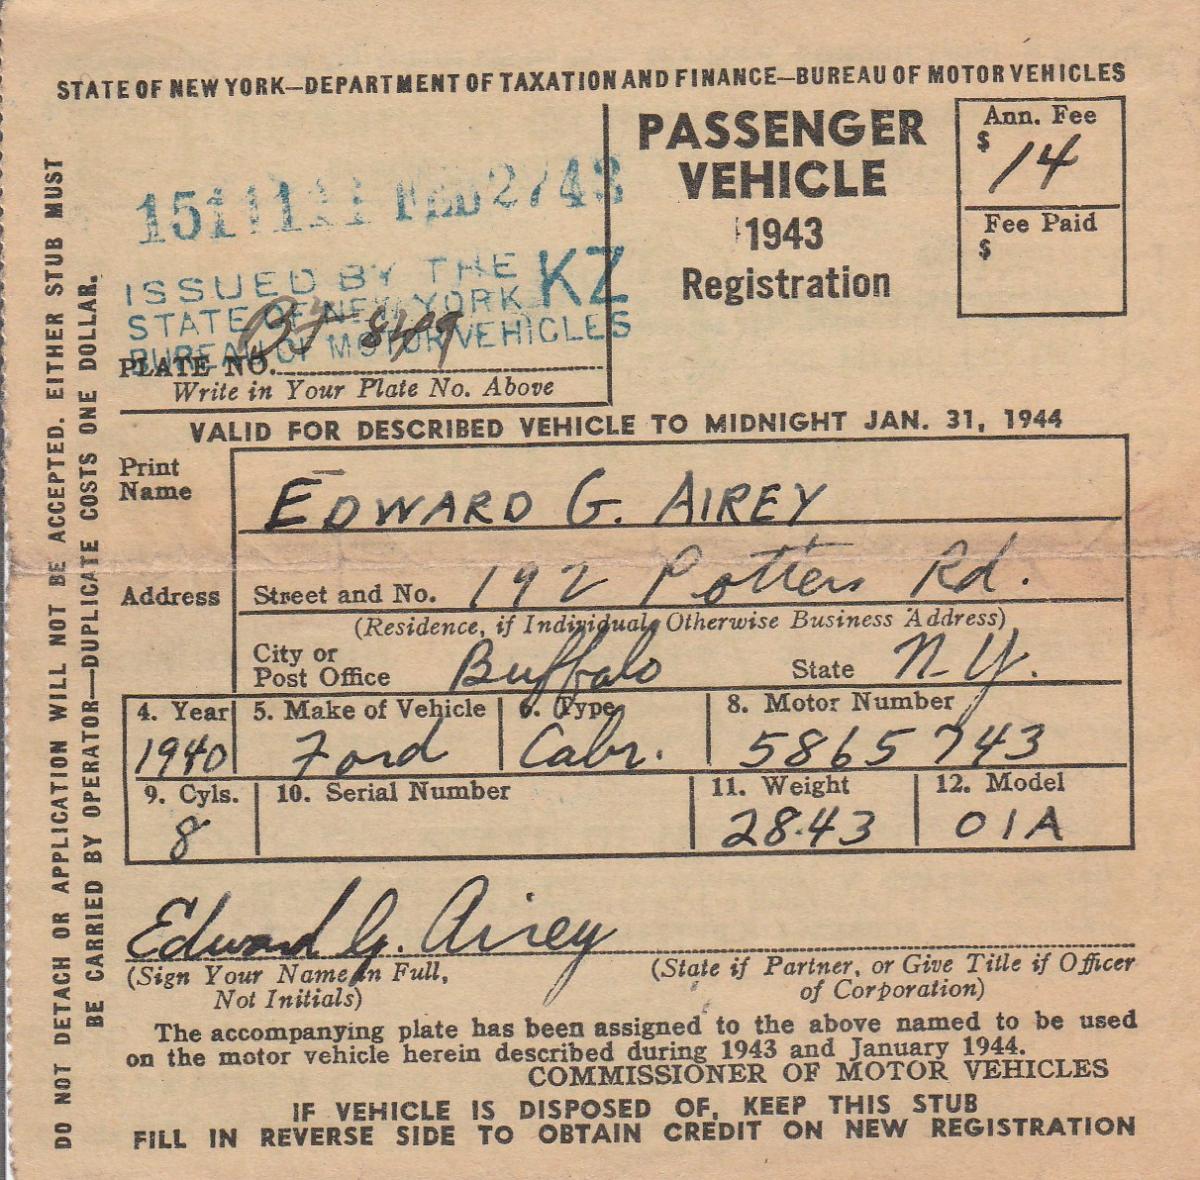 STATE OF NEW YORK—DEPARTMENT OF TAXATION AND FINANCE—BUREAU OF MOTOR VEHICLES
PASSENGER
VEHICLE
1943
Registration
Ann. Fee
$ 14
Fee Paid
$
ISSUED BY THE KZ
STATE OF NEW YORK
BUREAU OF MOTOR VEHICLES
PLATE NO.
Write in Your Plate No. Above
VALID FOR DESCRIBED VEHICLE TO MIDNIGHT JAN. 31, 1944
Print
Name
EDWARD G. AIREY
Address
Street and No. 192 Potters Rd.
(Residence, if Individual, Otherwise Business Address)
City or
Post Office Buffalo State N.Y.
4. Year 5. Make of Vehicle 6. Type 8. Motor Number
1940 Ford Cabr. 5865743
9. Cyls. 10. Serial Number 11. Weight 12. Model
8 2843 01A
Edward G. Airey
(Sign Your Name in Full,
Not Initials)
(State if Partner, or Give Title if Officer
of Corporation)
The accompanying plate has been assigned to the above named to be used
on the motor vehicle herein described during 1943 and January 1944.
COMMISSIONER OF MOTOR VEHICLES
IF VEHICLE IS DISPOSED OF, KEEP THIS STUB
FILL IN REVERSE SIDE TO OBTAIN CREDIT ON NEW REGISTRATION
DO NOT DETACH OR APPLICATION WILL NOT BE ACCEPTED. EITHER STUB MUST
BE CARRIED BY OPERATOR—DUPLICATE COSTS ONE DOLLAR.